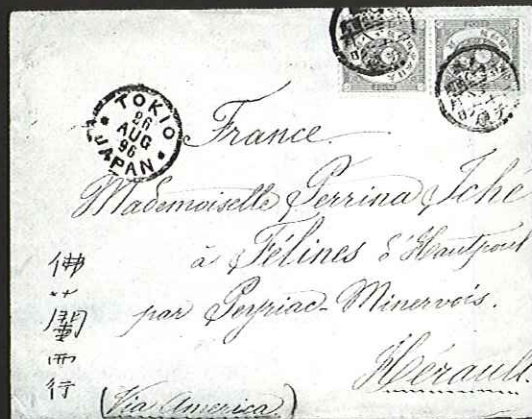 TOKIO
26
AUG
96
JAPAN
France.
Mademoiselle Perrina Tché
à Félines d'Hautpoul
par Peyriac-Minervois.
Hérault
(Via America)
佛
蘭
西
行